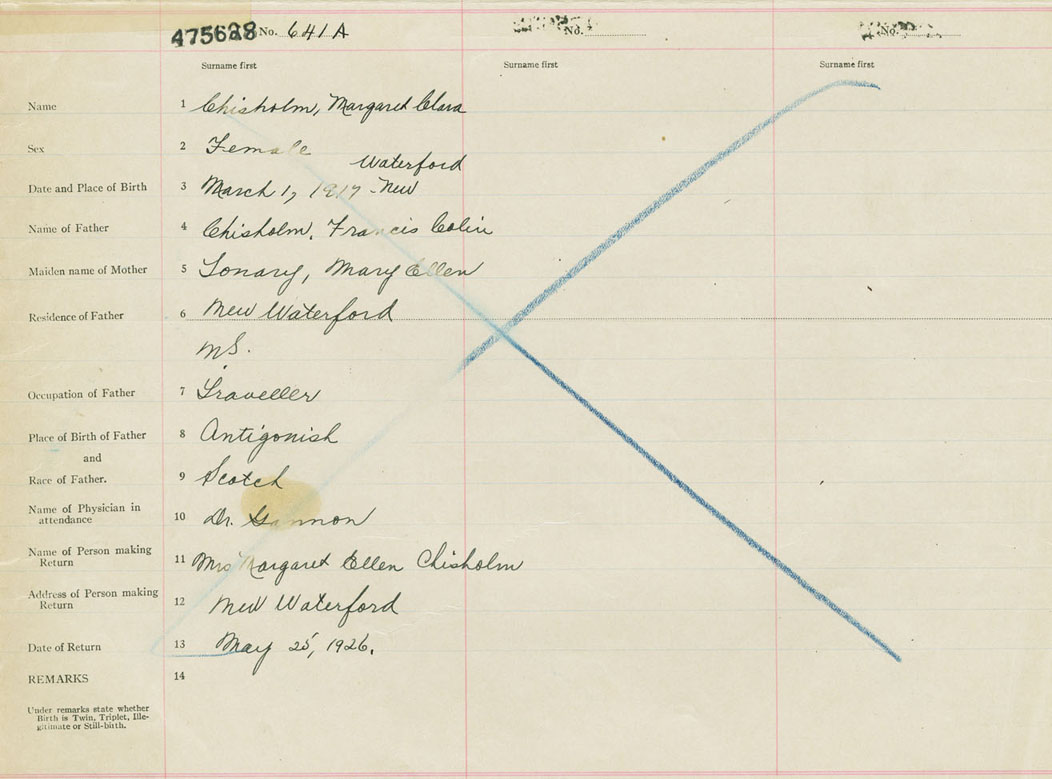 475628 No. 641 A
No.
No.
Surname first
Surname first
Surname first
Name 1 Chisholm, Margaret Clara
Sex 2 Female
Waterford
Date and Place of Birth 3 March 1, 1917 - New
Name of Father 4 Chisholm, Francis Colin
Maiden name of Mother 5 Mary Ellen
Residence of Father 6 New Waterford
NS.
Occupation of Father 7 Traveller
Place of Birth of Father 8 Antigonish
and
Race of Father. 9 Scotch
Name of Physician in
attendance 10 Dr. Gannon
Name of Person making
Return 11 Mrs Margaret Ellen Chisholm
Address of Person making
Return 12 New Waterford
Date of Return 13 May 25, 1926.
REMARKS 14
Under remarks state whether
Birth is Twin, Triplet, Ille-
gitimate or Still-birth.